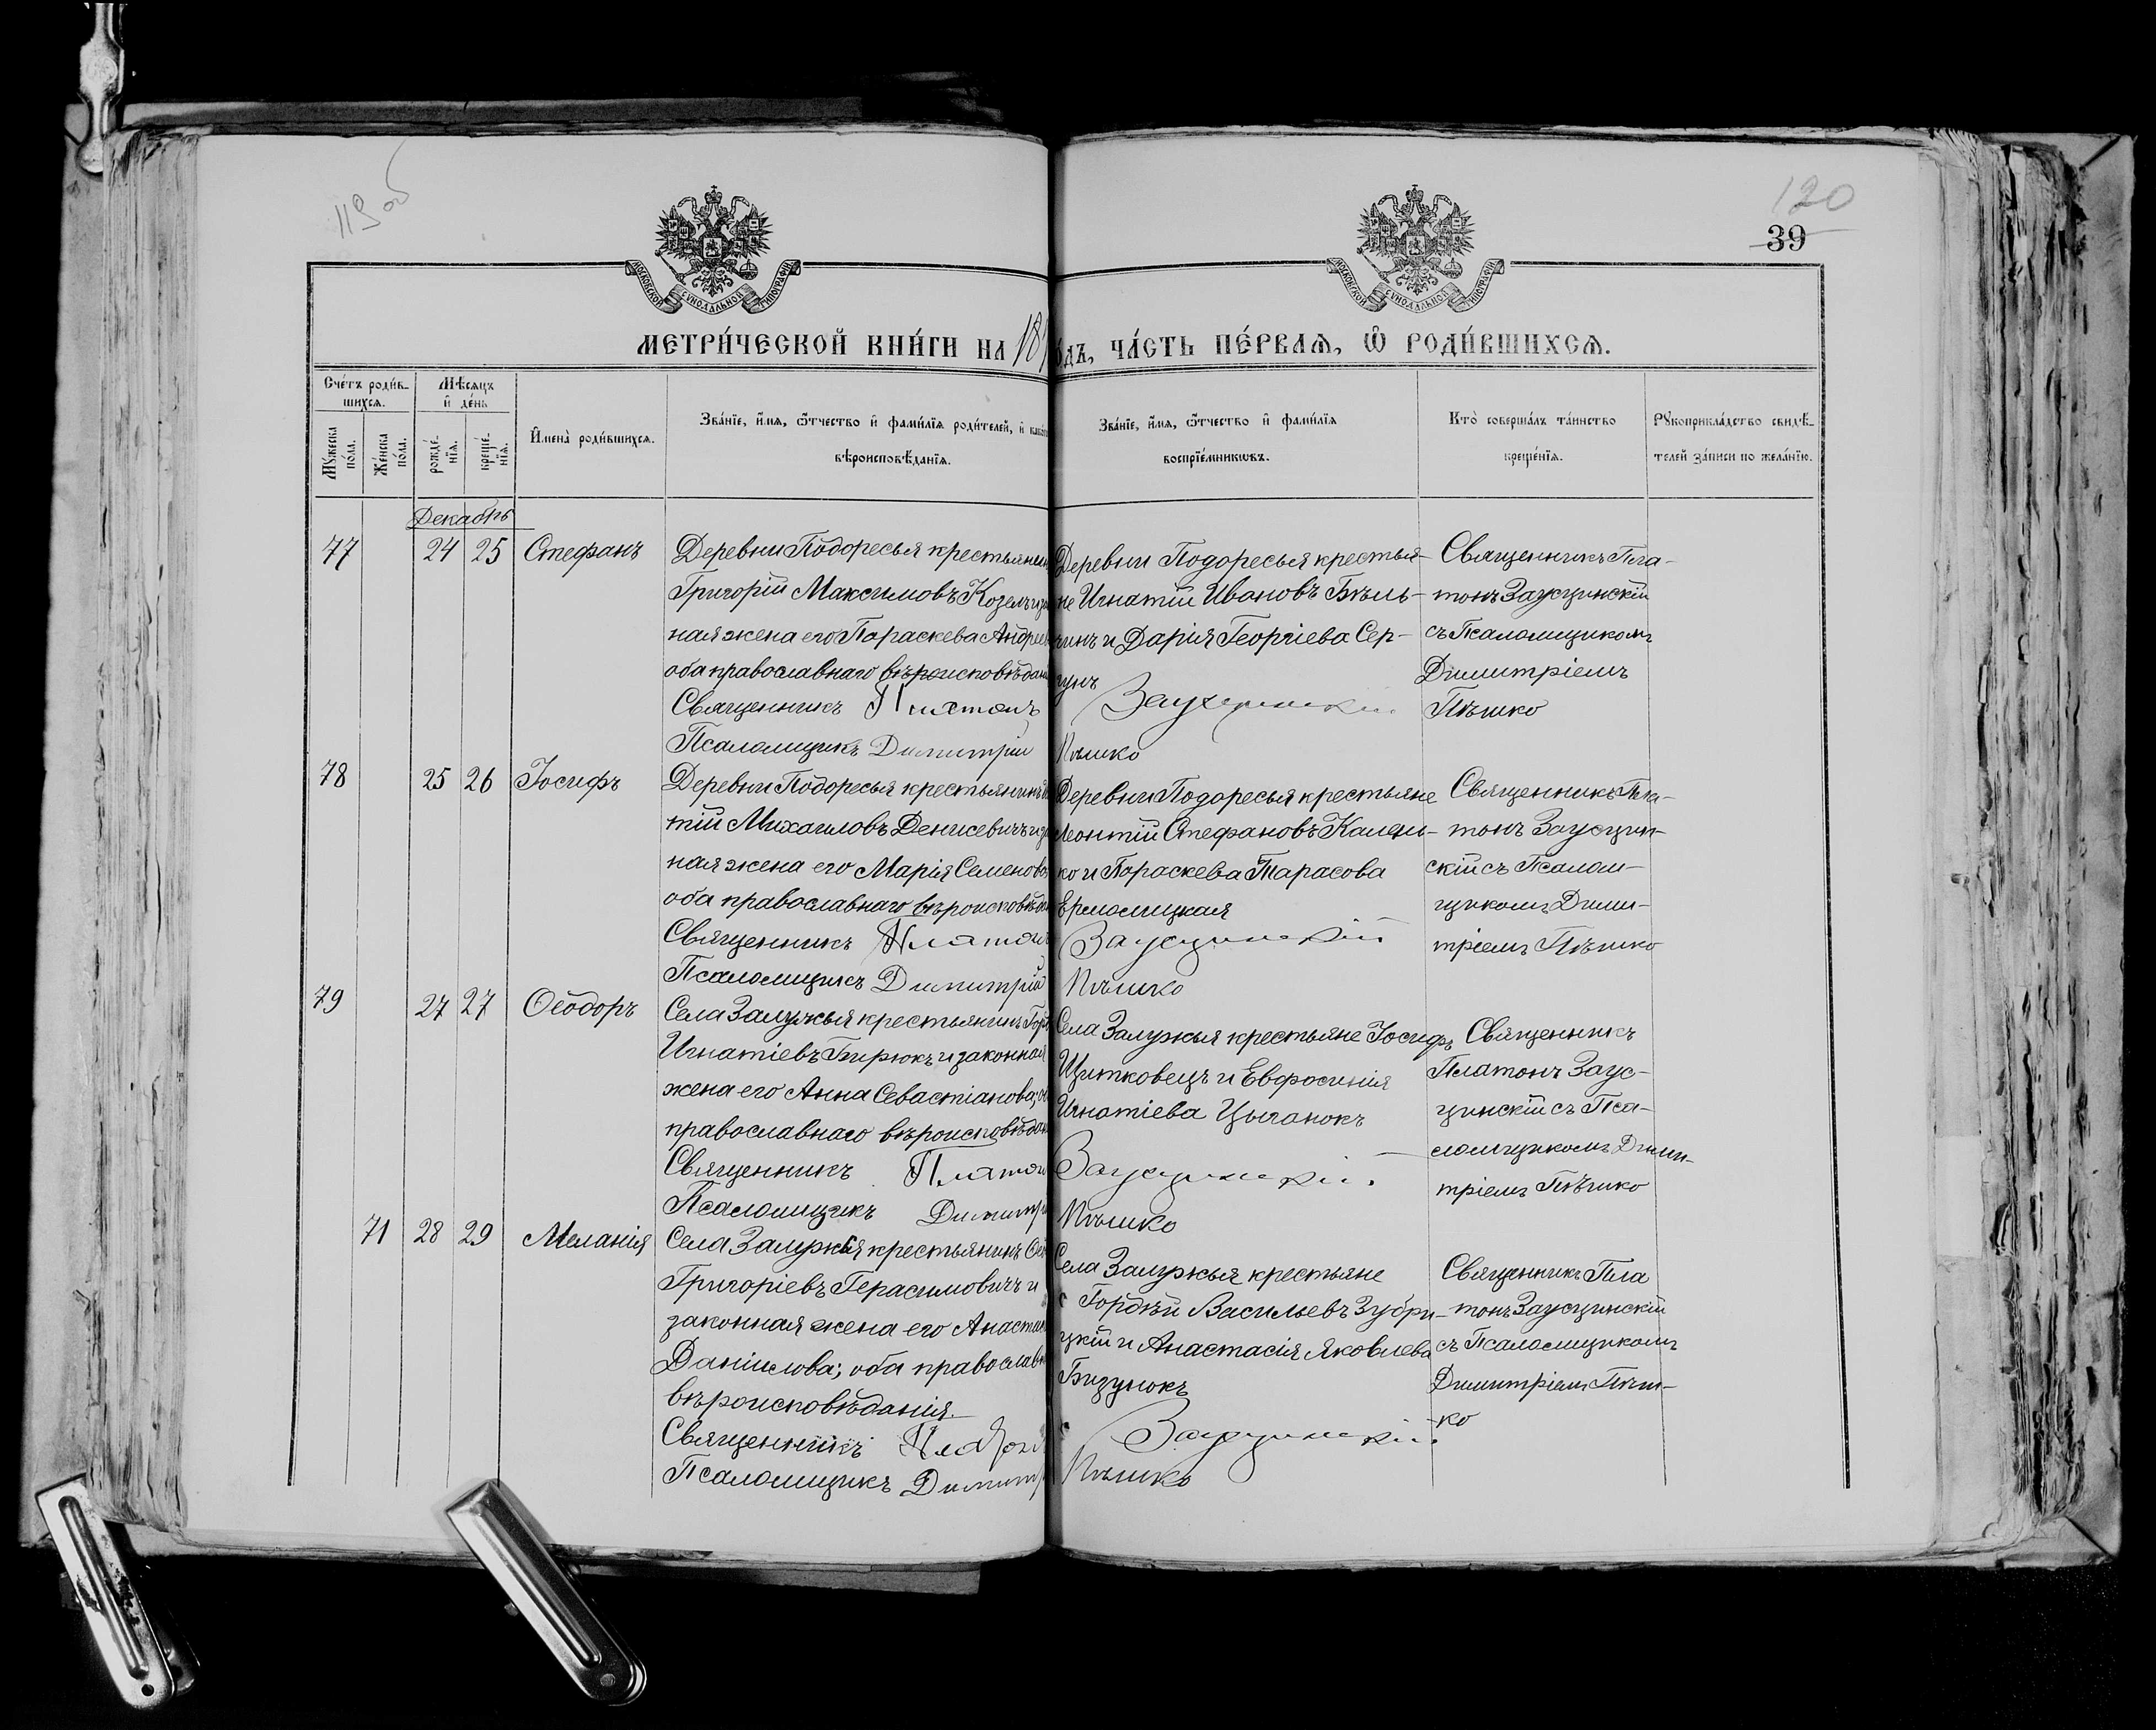 119 об
120
39
МОСКОВСКОЙ СѴНОДАЛЬНОЙ ТИПОГРАФІИ
МОСКОВСКОЙ СѴНОДАЛЬНОЙ ТИПОГРАФІИ
МЕТРИ́ЧЕСКОЙ КНИ́ГИ НА 18
ДЪ, ЧА́СТЬ ПЕ́РВАѦ, Ѡ҆ РОДИ́ВШИХСѦ.
Сче́тъ роди́в-
шихсѧ.
Мꙋ́жеска по́ла.
Же́нска по́ла.
Мѣ́сѧцъ
и҆ де́нь
рожде́-
нїѧ.
креще́-
нїѧ.
И҆мена̀ роди́вшихсѧ.
Зва́нїе, и҆́мѧ, ѻ҆́тчество и҆ фами́лїѧ роди́телей, и҆
вѣроисповѣ́данїѧ.
Зва́нїе, и҆́мѧ, ѻ҆́тчество и҆ фами́лїѧ
воспрїе́мникѡвъ.
Кто̀ соверша́лъ та́инство
креще́нїѧ.
Рꙋкоприкла́дство свидѣ́-
телей за́писи по жела́нїю.
Декабрь
77 24 25 Стефанъ
Деревни Подоресья крестьянин
Григорій Максимовъ Козелъ и за
ная жена его Параскева Андрее
оба православнаго вѣроисповѣдан
Священникъ Платонъ
Псаломщикъ Димитрій
Деревни Подоресья крестья-
не Игнатій Ивановъ Бѣль-
чинъ и Дарія Георгіева Сер-
гунъ
Заусцинскій
Пѣшко
Священникъ Пла-
тонъ Заусцинскій
съ Псаломщикомъ
Димитріемъ
Пѣшко
78 25 26 Іосифъ
Деревни Подоресья крестьянинъ
тій Михаиловъ Денисевичъ и за
ная жена его Марія Семенова
оба православнаго вѣроисповѣдан
Священникъ Платон
Псаломщикъ Димитрій
Деревни Подоресья крестьяне
Леонтій Стефановъ
ко и Параскева Тарасова
Ермолицкая
Заусцинскій
Пѣшко
Священникъ Пла-
тонъ Заусцин-
скій съ Псалом-
щикомъ Дими-
тріемъ Пѣшко
79 27 27 Ѳеодоръ
Села Залужья крестьянинъ
Игнатіевъ Бирюкъ и законная
жена его Анна Севастіанова;
православнаго вѣроисповѣдан
Священникъ Платон
Псаломщикъ Димитр
Села Залужья крестьяне Іосифъ
Щитковецъ и Евфросинія
Игнатіева Цыганокъ
Заусцинскій
Пѣшко
Священникъ
Платонъ Заус-
цинскій съ Пса-
ломщикомъ Дими-
тріемъ Пѣшко
71 28 29 Меланія
Села Залужья крестьянинъ Ѳео
Григоріевъ Герасимовичъ и
законная жена его Анастас
Даніилова; оба православн
вѣроисповѣданія.
Священникъ Платон
Псаломщикъ Димитр
Села Залужья крестьяне
Гордѣй Васильевъ Зубри-
цкій и Анастасія Яковлева
Бизунокъ
Заусцинскій
Пѣшко
Священникъ Пла
тонъ Заусцинскій
съ Псаломщикомъ
Димитріемъ Пѣш-
ко